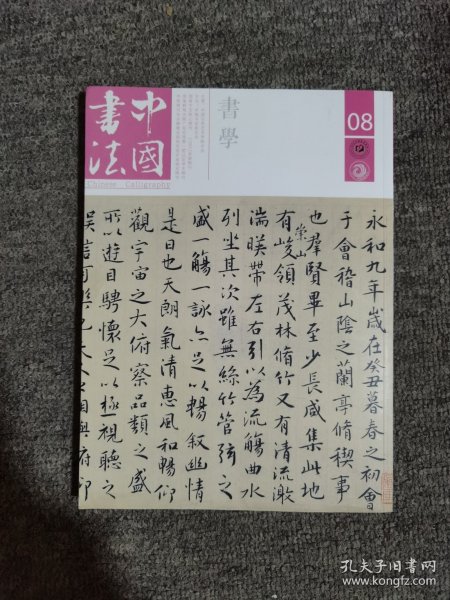 中國
書法
Chinese Calligraphy
書學
08
永和九年歲在癸丑暮春之初會
于會稽山陰之蘭亭脩稧事
也羣賢畢至少長咸集此地
有崇山峻領茂林脩竹又有清流激
湍暎帶左右引以為流觴曲水
列坐其次雖無絲竹管弦之
盛一觴一詠亦足以暢敘幽情
是日也天朗氣清惠風和暢仰
觀宇宙之大俯察品類之盛
所以遊目騁懷足以極視聽之
娛信可樂也夫人之相與俯仰
孔夫子旧书网
www.kongfz.com